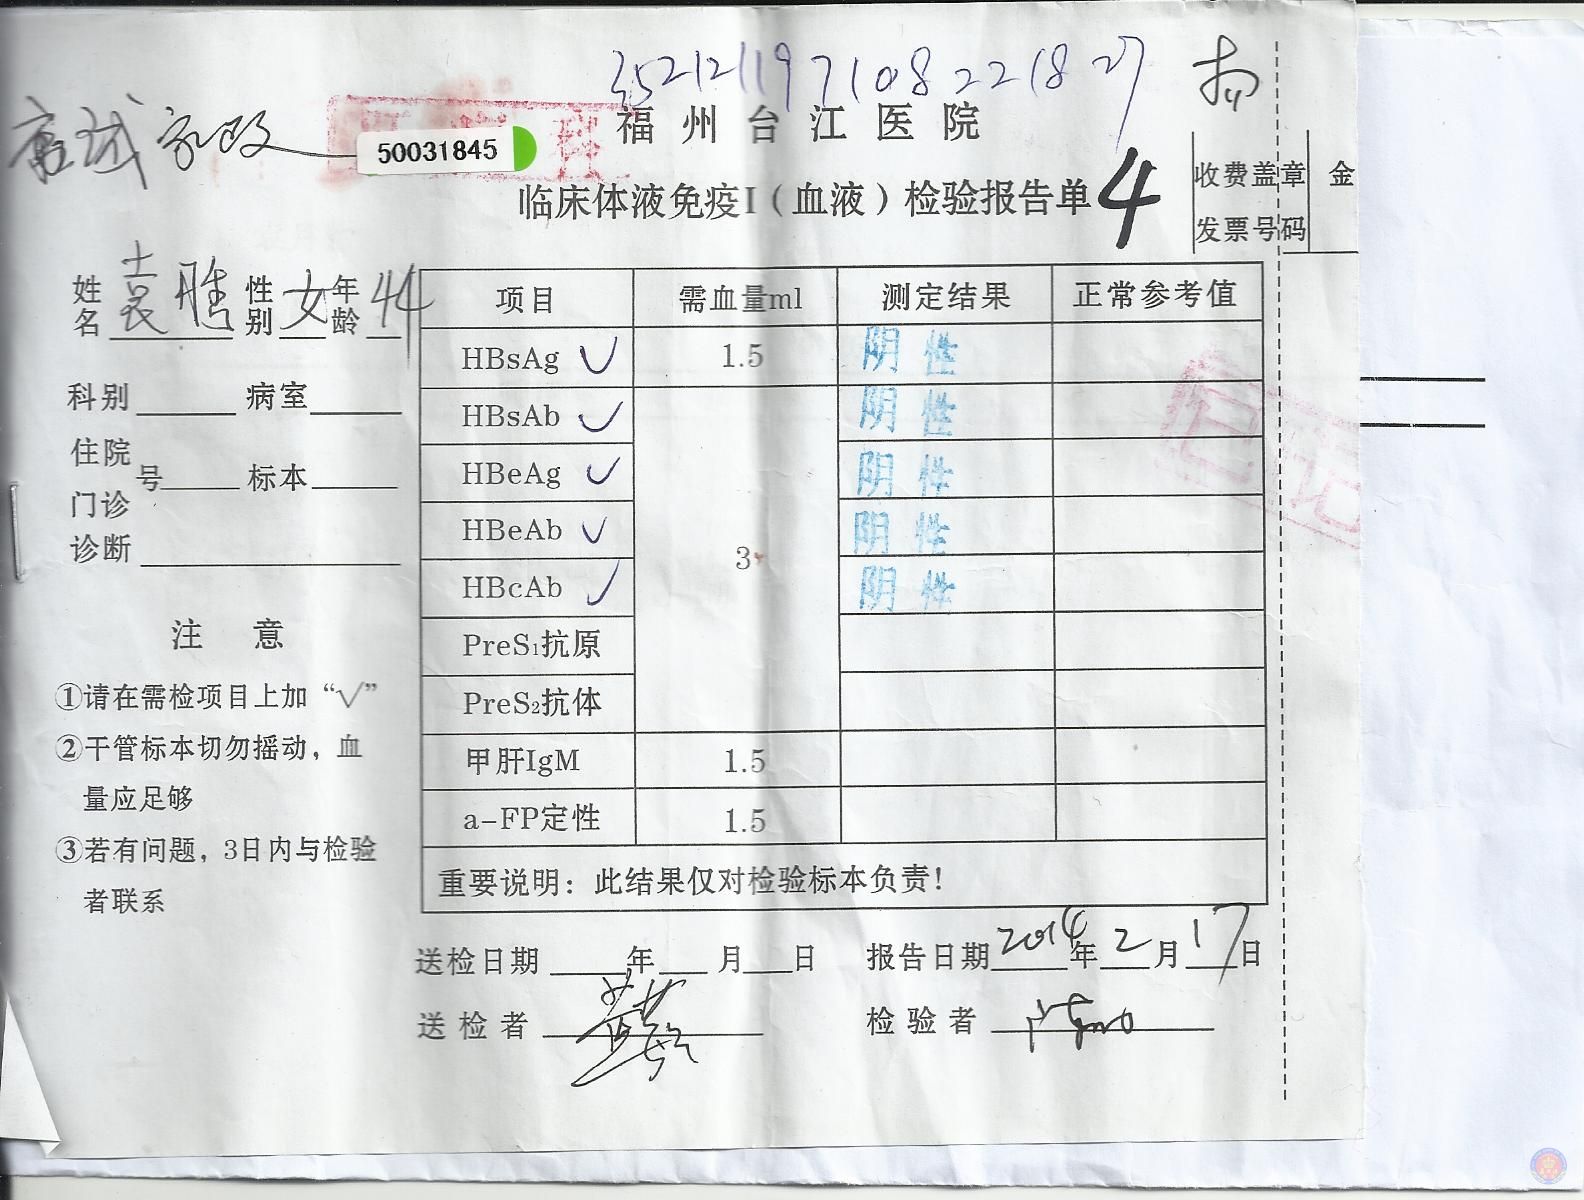 352121197108221827
福州台江医院
家政
50031845
临床体液免疫I（血液）检验报告单 4
收费盖章 金
发票号码
姓名 袁 性别 女 年龄 44
科别 病室
住院
门诊 号 标本
诊断
项目 需血量ml 测定结果 正常参考值
HBsAg ✓ 1.5 阴性
HBsAb ✓ 阴性
HBeAg ✓ 阴性
HBeAb ✓ 3 阴性
HBcAb ✓ 阴性
PreS₁抗原
PreS₂抗体
甲肝IgM 1.5
a-FP定性 1.5
重要说明：此结果仅对检验标本负责！
注 意
①请在需检项目上加“√”
②干管标本切勿摇动，血
量应足够
③若有问题，3日内与检验
者联系
送检日期 年 月 日 报告日期 2014年2月17日
送检者 检验者